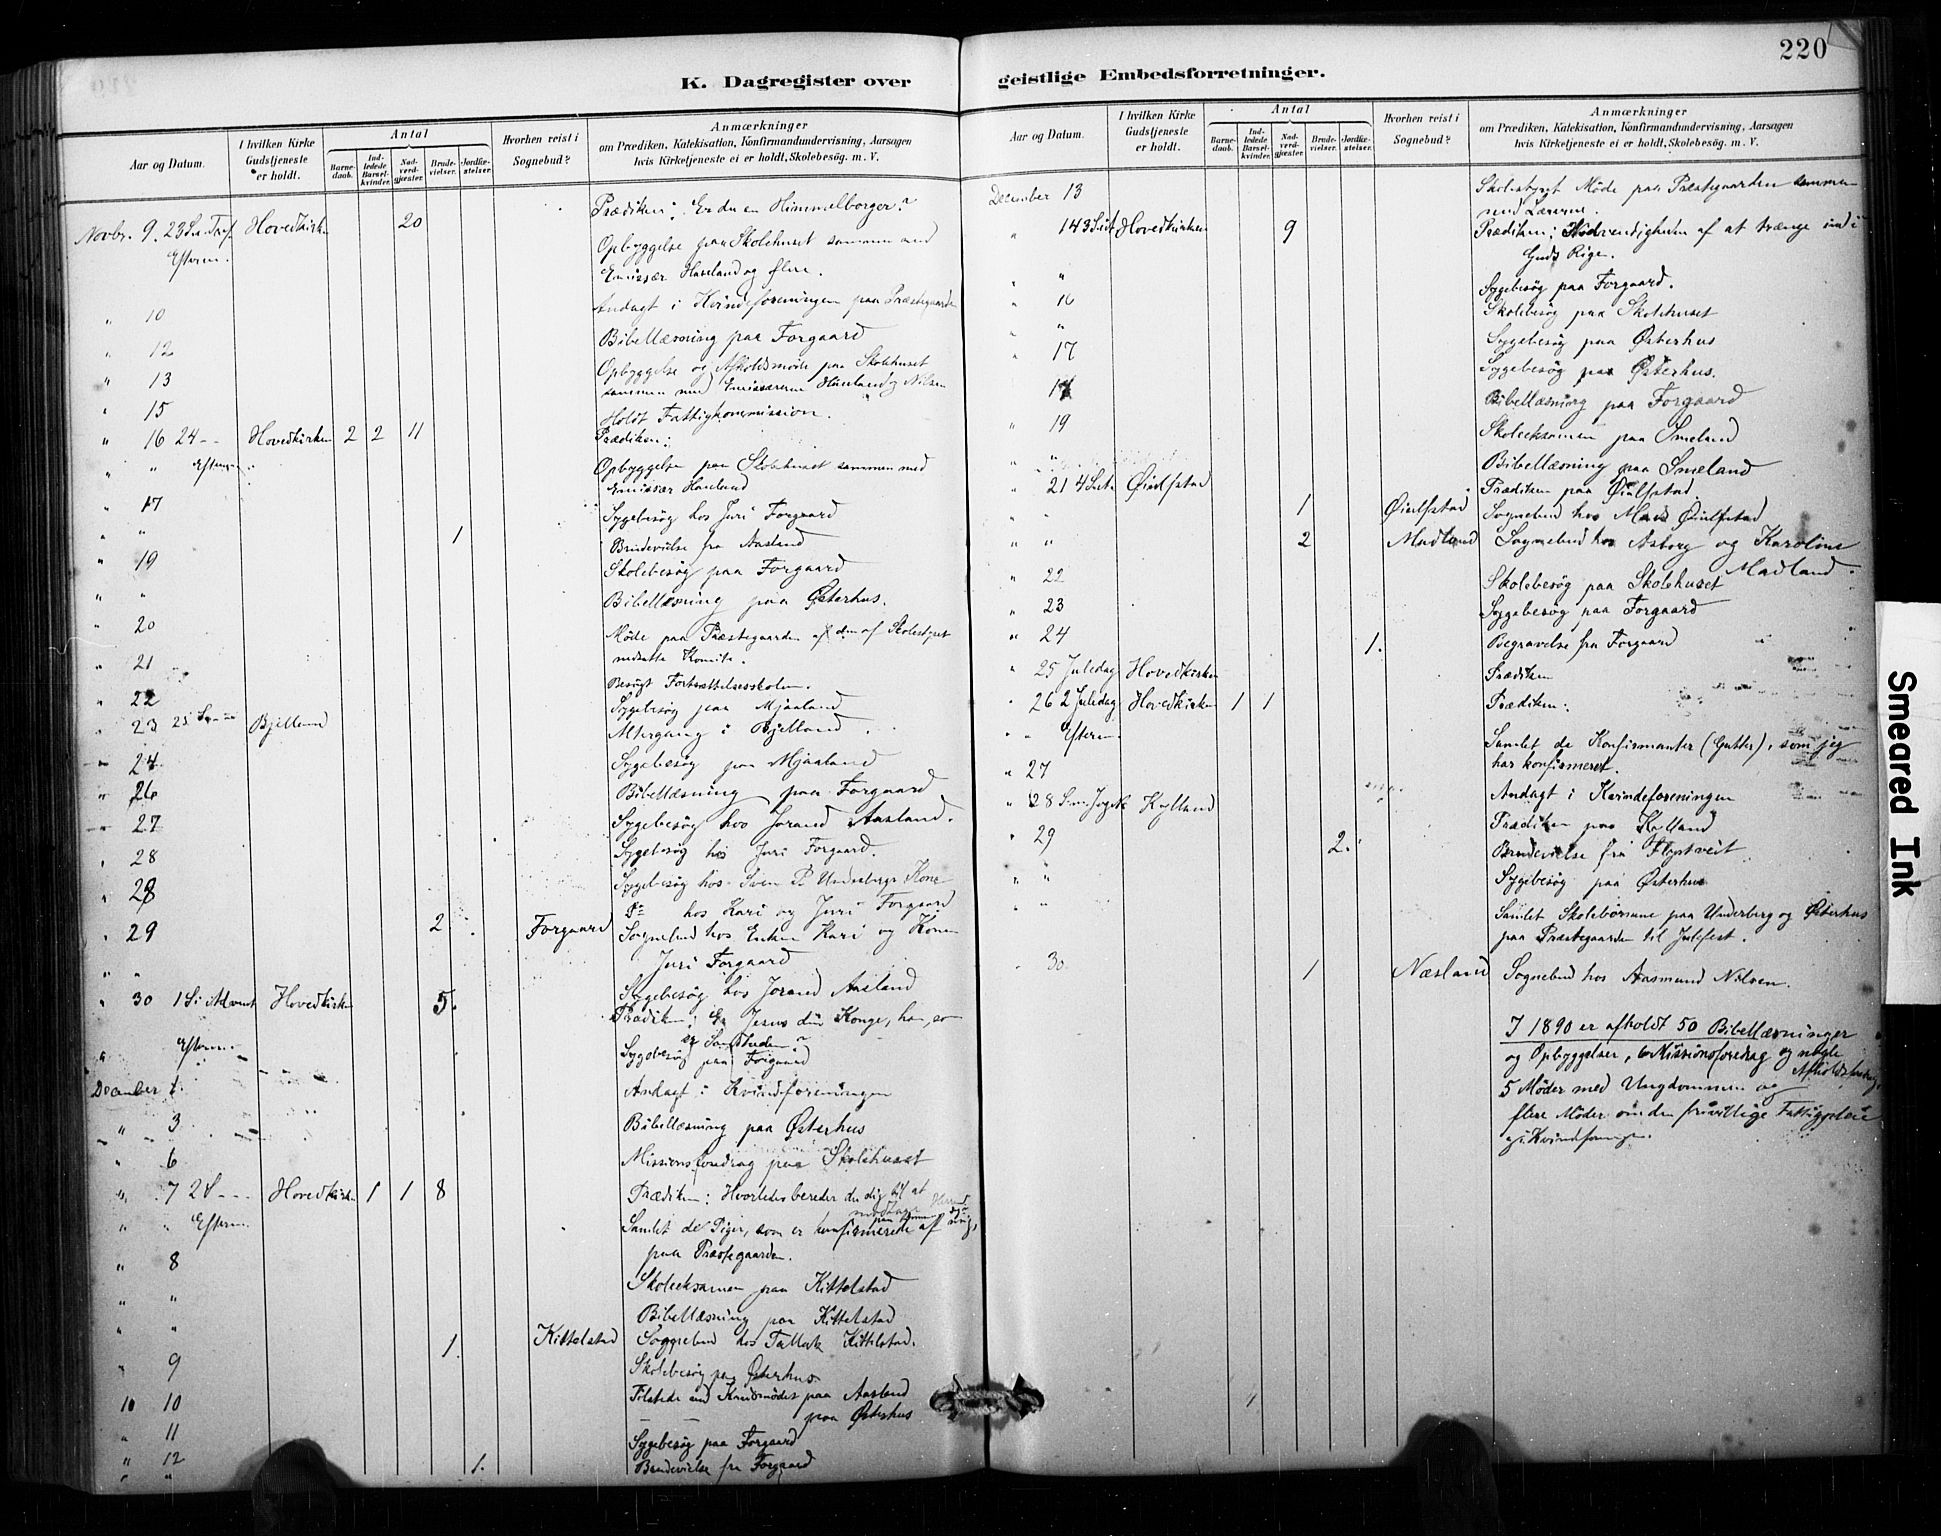 220
K. Dagregister over geistlige Embedsforretninger.
Aar og Datum.
I hvilken Kirke Gudstjeneste er holdt.
Antal
Barnedaab.
Indledede Barselkvinder.
Nadverdgjæster.
Brudevielser.
Jordfæstelser.
Hvorhen reist i Sognebud?
Anmærkninger
om Prædiken, Katekisation, Konfirmandundervisning, Aarsagen
hvis Kirketjeneste ei er holdt, Skolebesøg. m. V.
Novbr. 9. 23 S. e. Tref. Hovedkirken 20 Prædiken: Er du en Himmelborger?
Efterm. Opbyggelse paa Skolehuset sammen med
Emissær Haaland og flere.
" 10 Andagt i Kvindeforeningen paa Præstegaarden
" 12 Bibellæsning paa Forgaard
" 13 Opbyggelse og Afholdsmøde paa Skolehuset
sammen med Emissærerne Haaland og Nilsen
" 15 Holdt Fattigkommission.
" 16 24 - - Hovedkirken 2 2 11 Prædiken:
" " Efterm. Opbyggelse paa Skolehuset sammen med
Emissær Haaland
" 17 Sygebesøg hos Juri Forgaard
" " 1 Brudevielse fra Aasland
" 19 Skolebesøg paa Forgaard
" " Bibellæsning paa Østerhus.
" 20 Møde paa Præstegaarden af den af Skolestyret
nedsatte Komite.
" 21 Besøgt Fortsættelsesskolen.
" 22 Sygebesøg paa Mjaaland
" 23 25 S. - - Bjelland Altergang i Bjelland
" 24 Sygebesøg paa Mjaaland
" 26 Bibellæsning paa Forgaard
" 27 Sygebesøg hos Jorand Aasland.
" 28 Sygebesøg hos Juri Forgaard.
" 28 Sygebesøg hos Sven P. Underbergs Kone
Do hos Kari og Juri Forgaard
" 29 2 Forgaard Sognebud hos Enken Kari og Konen
Juri Forgaard
" " Sygebesøg hos Jorand Aasland
" 30 1 S. i Advent Hovedkirken 5. Prædiken: Er Jesus din Konge, han, som
er Sandheden?
" Efterm. Sygebesøg paa Forgaard
December 1. Andagt i Kvindeforeningen
" 3 Bibellæsning paa Østerhus
" 6 Missionsforedrag paa Skolehuset
" 7 2 S - - - Hovedkirken 1 1 8 Prædiken: Hvorledes bereder du dig til at
modtage Herren
" " Efterm. Samlet de Piger, som er konfirmerede af mig,
paa Præstegaarden.
" 8 Skoleeksamen paa Kittelstad
" " Bibellæsning paa Kittelstad
" " 1. Kittelstad Soggnebud hos Tallak Kittilstad.
" 9 Skolebesøg paa Østerhus
10 10 Tilstede ved Kredsmødet paa Aasland
" 11 — — paa Østerhus
" 12 Sygebesøg paa Forgaard
" " 1. Brudevielse fra Forgaard
Aar og Datum.
I hvilken Kirke Gudstjeneste er holdt.
Antal
Barnedaab.
Indledede Barselkvinder.
Nadverdgjæster.
Brudevielser.
Jordfæstelser.
Hvorhen reist i Sognebud?
Anmærkninger
om Prædiken, Katekisation, Konfirmandundervisning, Aarsagen
hvis Kirketjeneste ei er holdt, Skolebesøg. m. V.
December 13 Skolestyret Møde paa Præstegaarden sammen
med Lærerne.
" 14 3 S i A Hovedkirken 9 Prædiken: Nødvendigheden af at trænge ind i
Guds Rige.
" " Sygebesøg paa Forgaard.
" 16 Skolebesøg paa Skolehuset
" " Sygebesøg paa Østerhus
" 17 Sygebesøg paa Østerhus.
" 17 Bibellæsning paa Forgaard
" 19 Skoleeksamen paa Smeland
" " Bibellæsning paa Smeland
" 21 4 S i A Øiulfstad Prædiken paa Øiulfstad
" " 1 Øiulfstad Sognebud hos Mads Øiulfstad
" " 2 Madland Sognebud hos Asborg og Karoline
Madland.
" 22 Skolebesøg paa Skolehuset
" 23 Sygebesøg paa Forgaard
" 24 1. Begravelse fra Forgaard
" 25 Juledag Hovedkirken Prædiken
" 26 2 Juledag Hovedkirken 1 1 Prædiken:
" " Efterm. Samlet de Konfirmanter (Gutter), som jeg
har konfirmeret.
" 27 Andagt i Kvindeforeningen
" 28 S. m. Jul Kylland Prædiken paa Kylland
" 29 2. Brudevielse fra
" " Sygebesøg paa Østerhus
" " Samlet Skolebørnene paa Underberg og Østerhus
paa Præstegaarden til Julefest.
" 30. 1 Næsland Sognebud hos Aasmund Nilsen.
I 1890 er afholdt 50 Bibellæsninger
og Opbyggelser, 6 Missionsforedrag og nogle
Afholdsforedrag,
5 Møder med Ungdommen og
flere Møder om den frivillige Fattigpleie
og i Kvindeforeningen.
Smeared Ink